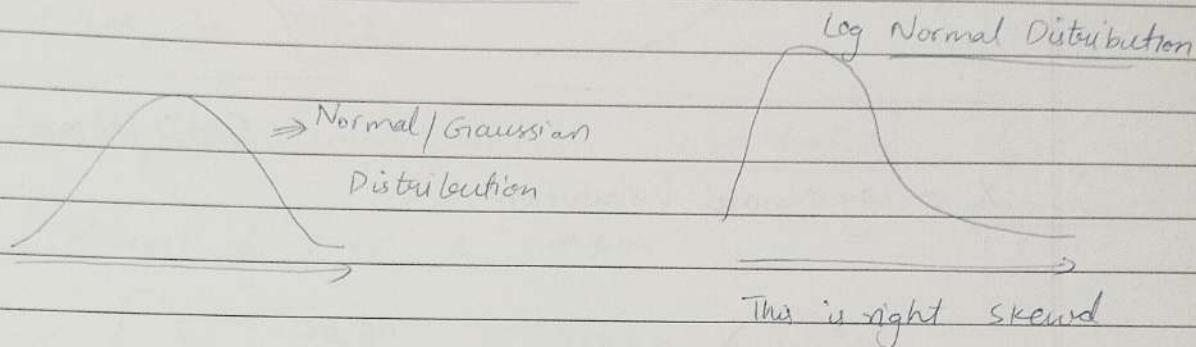 Log Normal Distribution
⇒ Normal/Gaussian
Distribution
This is right skewd